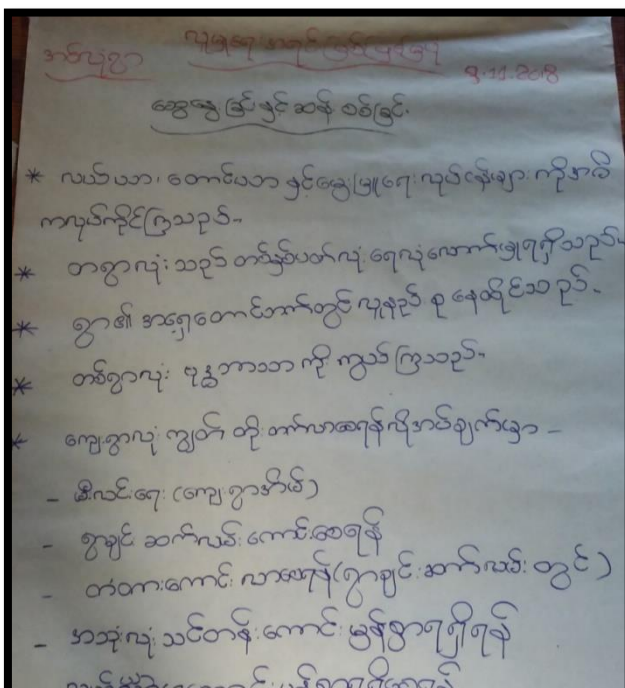 လူမှုရေး အရင်းအမြစ်ပြမြေပုံ
အင်လုံရွာ
9.11.2018
ဆွေးနွေးခြင်းနှင့်ဆန်းစစ်ခြင်း
* လယ်ယာ၊ တောင်ယာ နှင့်မွေးမြူရေး လုပ်ငန်းများ ကိုအဓိ
ကလုပ်ကိုင်ကြသည်။
* တရွာလုံး သည် တစ်နှစ်ပတ်လုံး ရေလုံလောက်မှုရရှိသည်။
* ရွာ၏ အရှေ့တောင်ဘက်တွင် လူနည်းစု နေထိုင်သည်။
* တစ်ရွာလုံး ဗုဒ္ဓဘာသာ ကိုးကွယ်ကြသည်။
* ကျေးရွာလုံးကျွတ် တိုးတက်လာစေရန်လိုအပ်ချက်မှာ -
- မီးလင်းရေး (ကျေးရွာအိမ်)
- ရွာချင်း ဆက်လမ်း ကောင်းစေရန်
- တံတားကောင်း လာစေရန် (ရွာချင်းဆက်လမ်း တွင်)
- အသုံးလုံး သင်တန်း ကောင်းမွန်စွာရရှိရန်